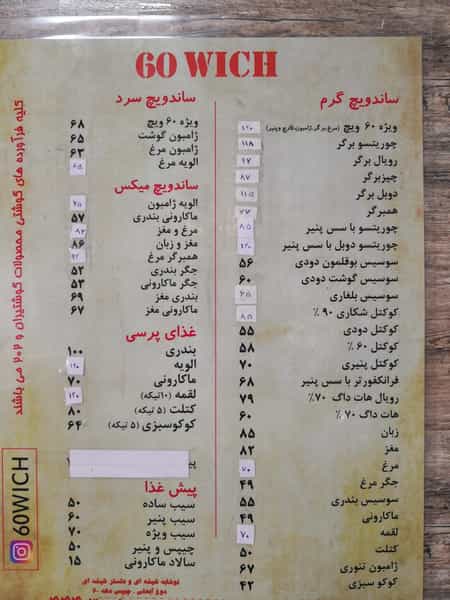 60 WICH
ساندویچ گرم
ویژه ۶۰ ویچ (مرغ،برگر،ژامبون،قارچ و پنیر) ۱۲۰
چوریتسو برگر ۱۱۸
رویال برگر ۹۷
چیزبرگر ۸۷
دوبل برگر ۱۱۵
همبرگر
چوریتسو با سس پنیر ۸۵
چوریتسو دوبل با سس پنیر ۱۲۰
سوسیس بوقلمون دودی ۵۶
سوسیس گوشت دودی ۶۰
سوسیس بلغاری ۶۵
کوکتل شکاری ۹۰ ٪ ۸۵
کوکتل دودی ۵۵
کوکتل ۶۰ ٪ ۵۸
کوکتل پنیری ۷۰
فرانکفورتر با سس پنیر ۶۸
رویال هات داگ ۷۰٪ ۷۹
هات داگ ۷۰ ٪ ۶۰
زبان ۸۵
مغز ۸۲
مرغ ۷۰
جگر مرغ ۴۹
سوسیس بندری ۵۵
ماکارونی ۴۹
لقمه ۷۰
کتلت ۵۰
ژامبون تنوری ۶۷
کوکو سبزی ۴۲
ساندویچ سرد
ویژه ۶۰ ویچ ۶۸
ژامبون گوشت ۶۵
ژامبون مرغ ۶۳
الویه مرغ ۶۵
ساندویچ میکس
الویه ژامبون ۷۵
ماکارونی بندری ۵۷
مرغ و مغز ۸۲
مغز و زبان ۸۶
همبرگر مرغ ۹۲
جگر بندری ۵۲
جگر ماکارونی ۵۳
بندری مغز ۶۹
ماکارونی مغز ۶۷
غذای پرسی
بندری ۱۰۰
الویه ۱۲۰
ماکارونی ۷۰
لقمه (۱۰تیکه) ۱۲۰
کتلت (۵ تیکه) ۸۰
کوکوسبزی (۵ تیکه) ۶۴
پیش غذا
سیب ساده ۵۰
سیب پنیر ۶۰
سیب ویژه ۷۰
چیپس و پنیر ۵۰
سالاد ماکارونی ۱۵
نوشابه شیشه ای و دلستر شیشه ای
دوغ آبعلی . چیپس دهه ۶۰
کلیه فرآورده های گوشتی محصولات گوشتیران و ۲۰۲ می باشند
60WICH